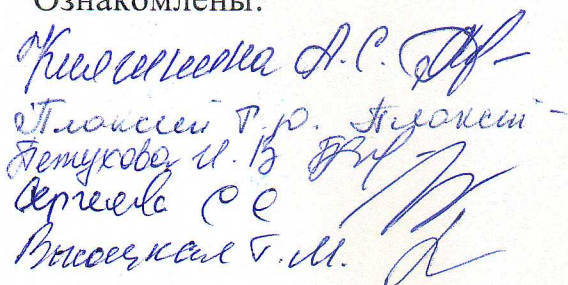 Ознакомлены:
Княгинина А.С.
Плаксий Т.Ю. Плаксий
Петухова И.В
Сергеева С С
Высоцкая Т.М.